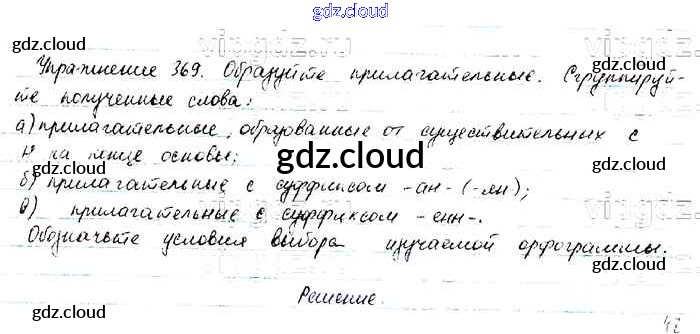 gdz.cloud
gdz.cloud gdz.cloud
Упражнение 369. Образуйте прилагательные. Сгруппируй-
те полученные слова:
а) прилагательные, образованные от существительных с
н на конце основы;
gdz.cloud gdz.cloud gdz.cloud
б) прилагательные с суффиксом -ан- (-ян);
в) прилагательные с суффиксом -енн-.
Обозначьте условия выбора изучаемой орфограммы.
Решение.
gdz.cloud gdz.cloud